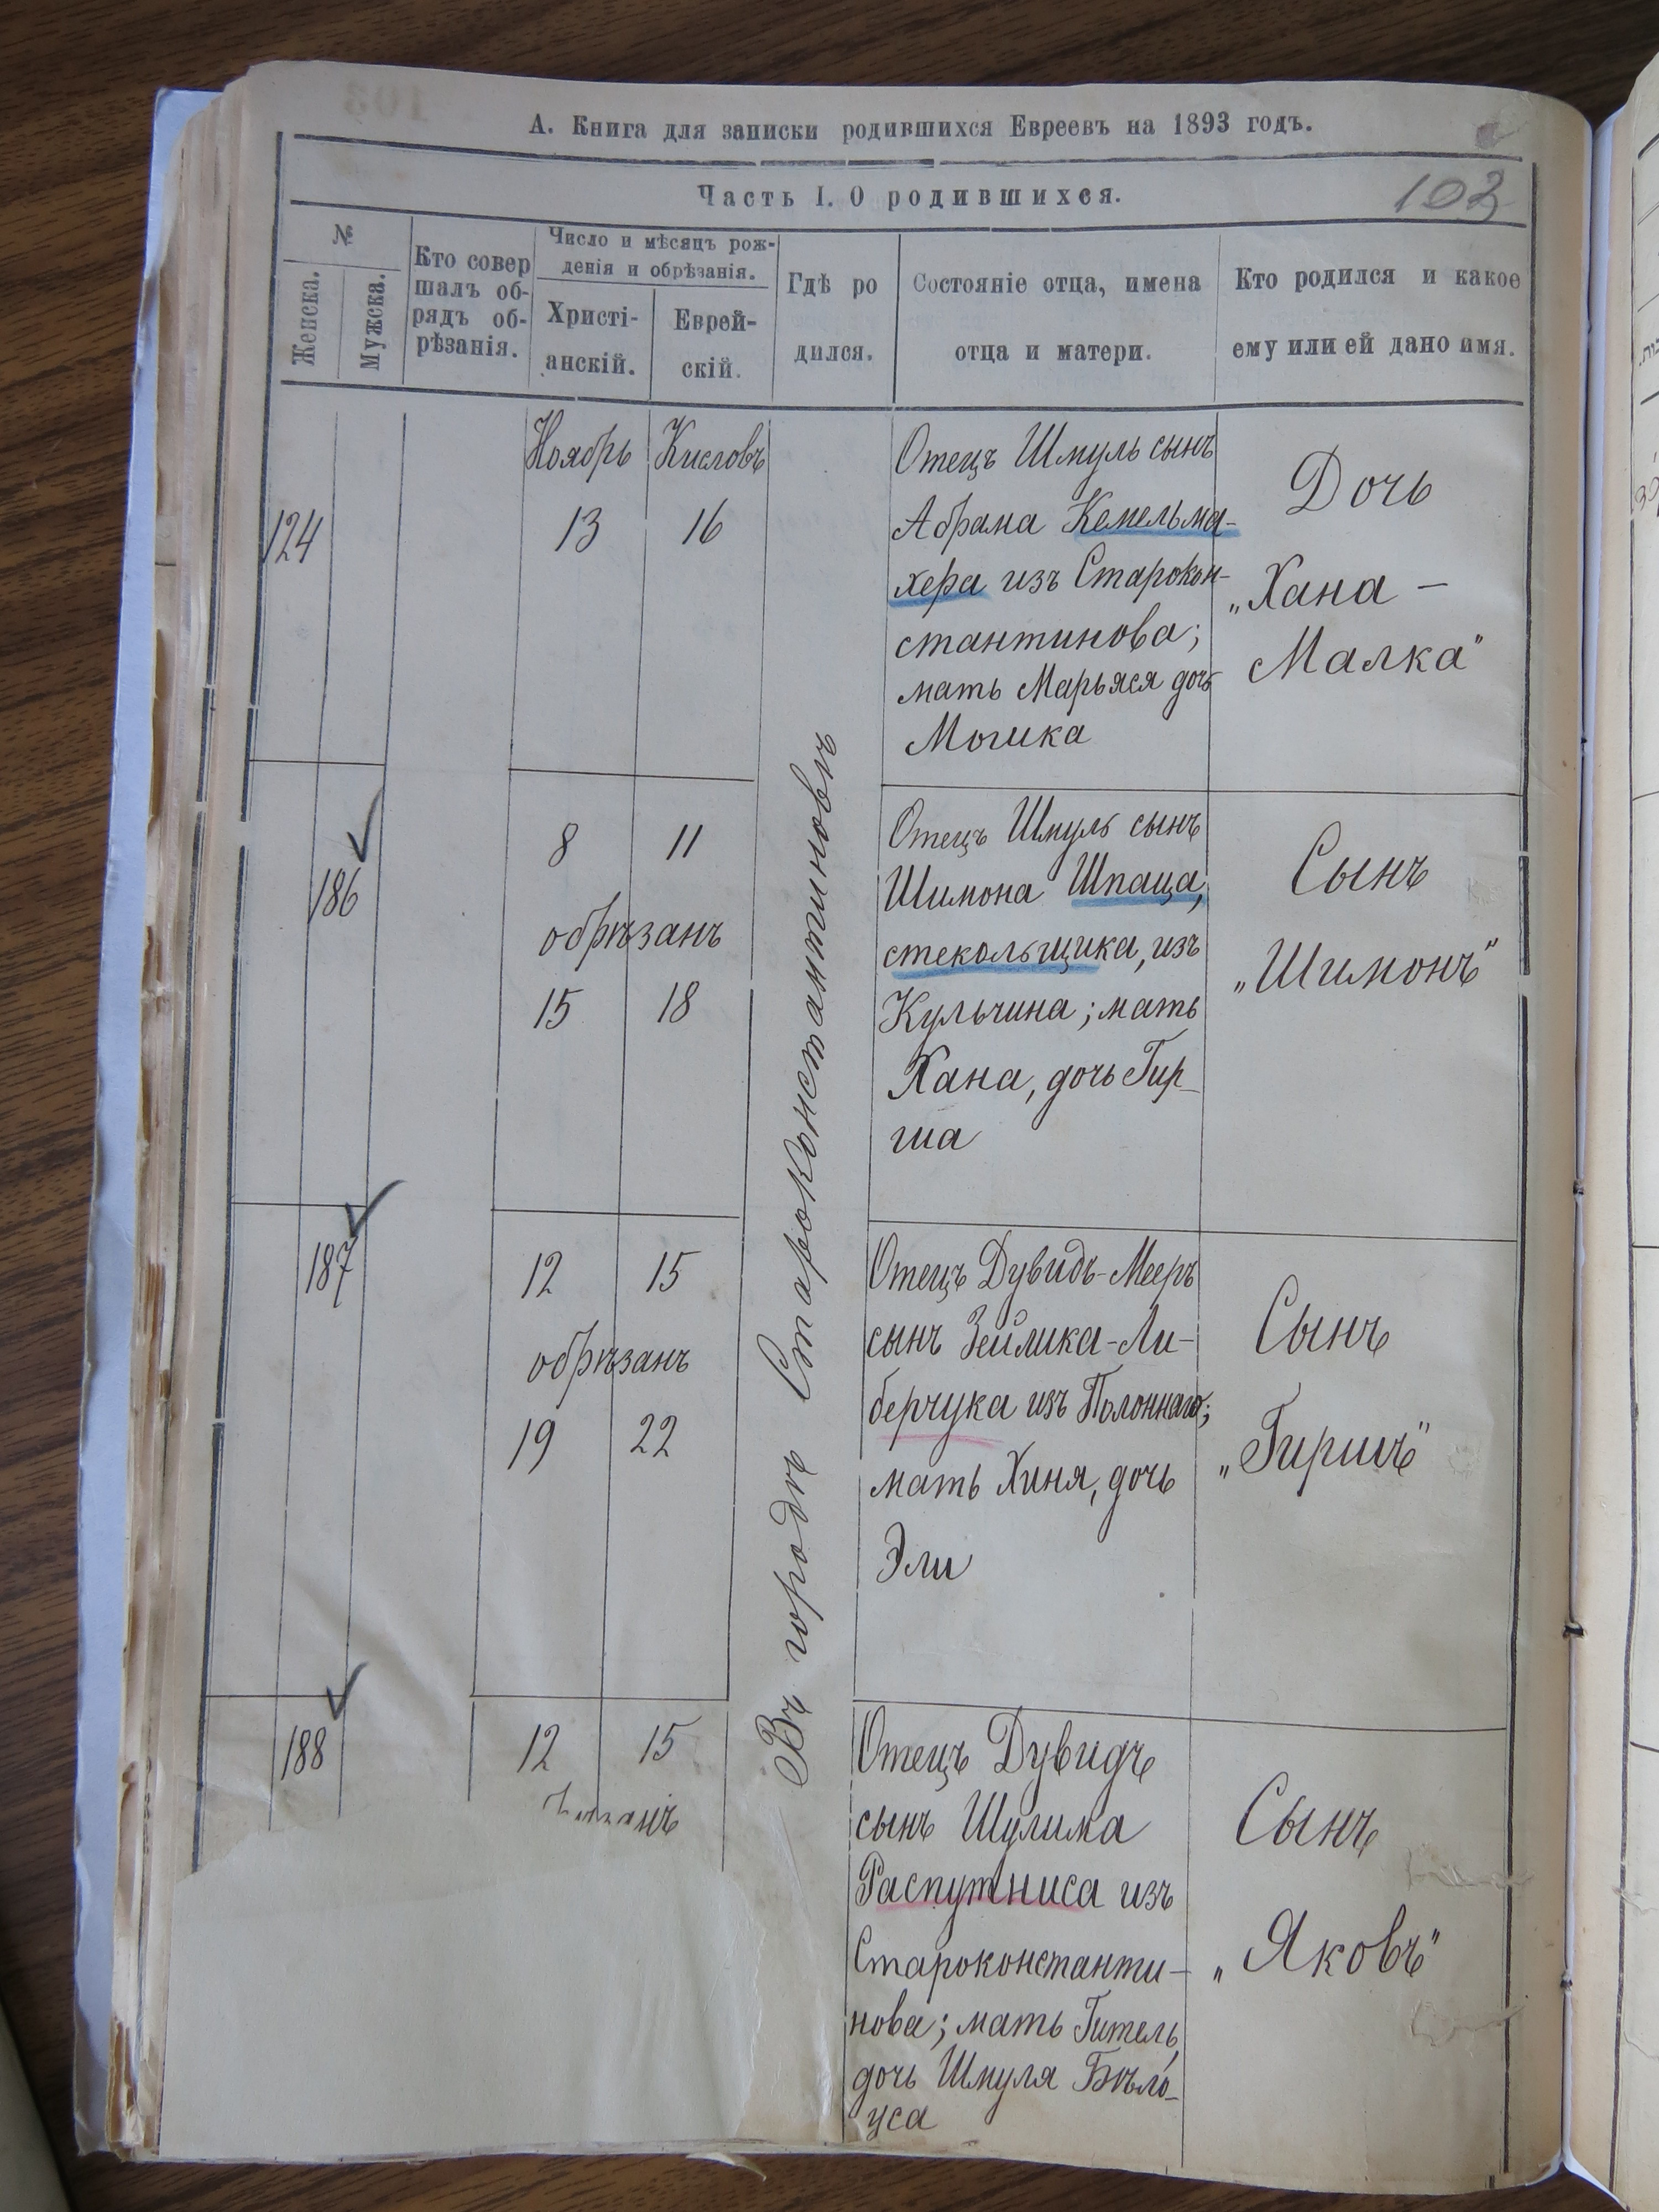 А. Книга для записки родившихся Евреевъ на 1893 годъ.
Часть I. О родившихся.
103
№
Женска.
Мужска.
Кто совер
шалъ об-
рядъ об-
рѣзанія.
Число и мѣсяцъ рож-
денія и обрѣзанія.
Христі-
анскій.
Еврей-
скій.
Гдѣ ро
дился.
Состояніе отца, имена
отца и матери.
Кто родился и какое
ему или ей дано имя.
Ноябрь Кисловъ
124 13 16
Отецъ Шмуль сынъ
Абрама Кемельма-
хера изъ Старокон-
стантинова;
мать Марьяся дочь
Мошка
Дочь
„Хана-
Малка"
Въ городѣ Староконстантиновѣ
186 8 11
обрѣзанъ
15 18
Отецъ Шмуль сынъ
Шимона Шпаца,
стекольщика, изъ
Кульчина; мать
Хана, дочь Гир-
ша
Сынъ
„Шимонъ"
187 12 15
обрѣзанъ
19 22
Отецъ Дувидъ-Мееръ
сынъ Зейлика-Ли-
берчука изъ Полоннаго;
мать Хиня, дочь
Эли
Сынъ
„Гиршъ"
188 12 15
Отецъ Дувидъ
сынъ Шулима
Распутниса изъ
Староконстанти-
нова; мать Гитель,
дочь Шмуля Бѣло-
уса
Сынъ
„Яковъ"